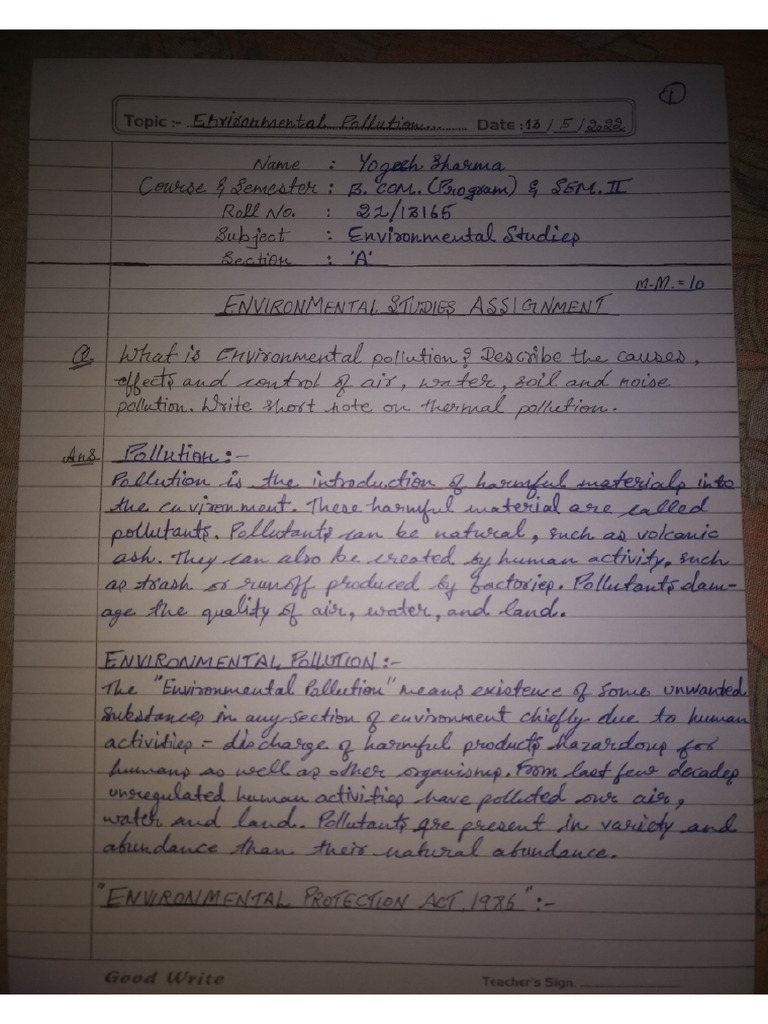 1
Topic :- Environmental Pollution............ Date : 13 / 5 / 2022
Name : Yogesh Sharma
Course & Semester : B. COM. (Program) & SEM. II
Roll No. : 21/18165
Subject : Environmental Studies
Section : 'A'
M.M. = 10
ENVIRONMENTAL STUDIES ASSIGNMENT
Q. What is Environmental pollution? Describe the causes,
effects and control of air, water, soil and noise
pollution. Write short note on thermal pollution.
Ans Pollution :-
Pollution is the introduction of harmful materials into
the environment. These harmful material are called
pollutants. Pollutants can be natural, such as volcanic
ash. They can also be created by human activity, such
as trash or runoff produced by factories. Pollutants dam-
age the quality of air, water, and land.
ENVIRONMENTAL POLLUTION :-
The "Environmental Pollution" means existence of some unwanted
substances in any section of environment chiefly due to human
activities - discharge of harmful products hazardous for
humans as well as other organisms. From last few decades
unregulated human activities have polluted our air,
water and land. Pollutants are present in variety and
abundance than their natural abundance.
"ENVIRONMENTAL PROTECTION ACT, 1986" :-
Good Write Teacher's Sign